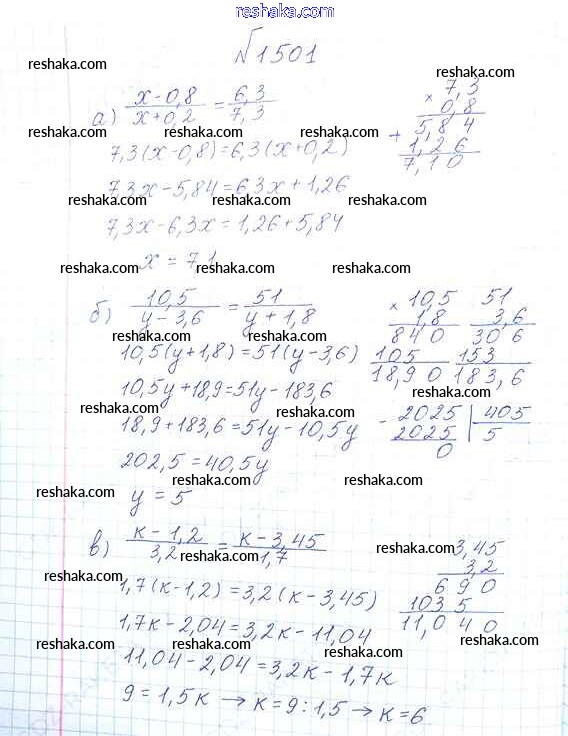 reshaka.com
№1501
reshaka.com reshaka.com
а) (x-0,8)/(x+0,2) = 6,3/7,3
reshaka.com
7,3(x-0,8)=6,3(x+0,2)
reshaka.com reshaka.com
7,3x-5,84=6,3x+1,26
reshaka.com reshaka.com
7,3x-6,3x=1,26+5,84
x = 7,1
reshaka.com reshaka.com reshaka.com
× 7,3
0,8
+ 5,84
1,26
7,10
б) 10,5/(y-3,6) = 51/(y+1,8)
reshaka.com reshaka.com
10,5(y+1,8)=51(y-3,6)
10,5y+18,9=51y-183,6
reshaka.com reshaka.com
18,9+183,6=51y-10,5y
reshaka.com
202,5=40,5y
reshaka.com reshaka.com reshaka.com
y = 5
× 10,5
1,8
840
105
18,90
51
3,6
306
153
183,6
- 2025 | 405
2025 5
0
в) (к-1,2)/3,2 = (к-3,45)/1,7
reshaka.com reshaka.com
1,7(к-1,2)=3,2(к-3,45)
reshaka.com reshaka.com
1,7к-2,04=3,2к-11,04
reshaka.com reshaka.com reshaka.com
11,04-2,04=3,2к-1,7к
9=1,5к → к=9:1,5 → к=6
reshaka.com reshaka.com reshaka.com
3,45
3,2
690
1035
11,040